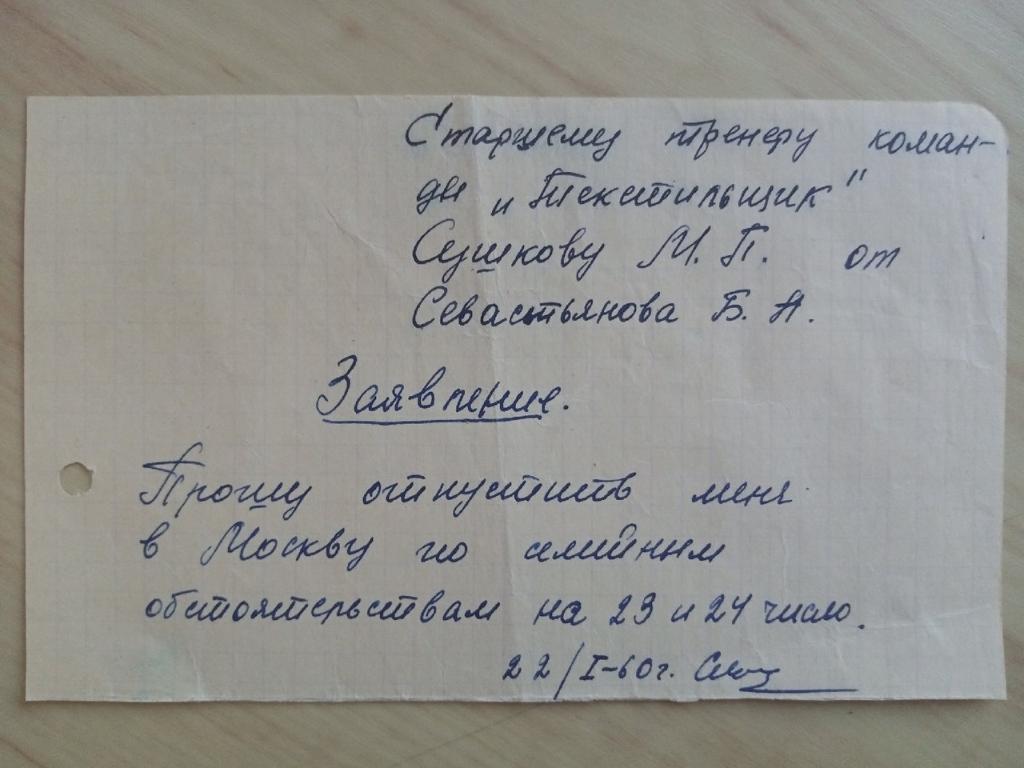 Старшему тренеру коман-
ды „Текстильщик"
Сушкову М. П. от
Севастьянова Б. А.
Заявление.
Прошу отпустить меня
в Москву по семейным
обстоятельствам на 23 и 24 число.
22/I-60г.